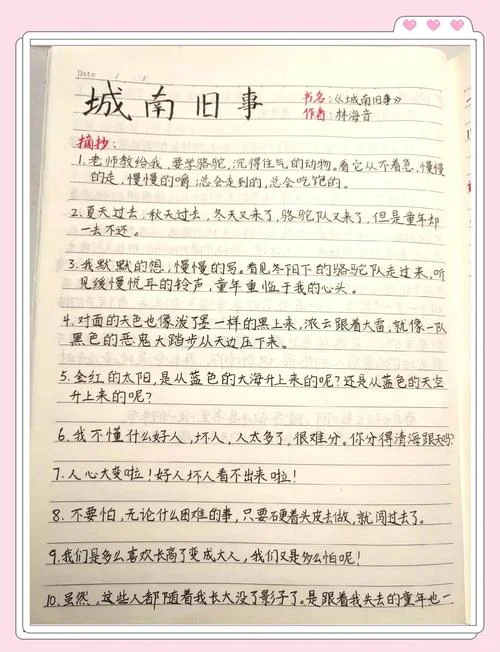 Date / /
城南旧事
书名:《城南旧事》
作者:林海音
摘抄:
1.老师教给我,要学骆驼,沉得住气的动物。看它从不着急,慢慢
的走,慢慢的嚼;总会走到的,总会吃饱的。
2.夏天过去,秋天过去,冬天又来了,骆驼队又来了,但是童年却
一去不还。
3.我默默的想,慢慢的写。看见冬阳下的骆驼队走过来,听
见缓慢悦耳的铃声,童年重临于我的心头。
4.对面的天色也像泼了墨一样的黑上来,浓云跟着大雷,就像一队
黑色的恶鬼大踏步从天边压下来。
5.金红的太阳,是从蓝色的大海升上来的呢?还是从蓝色的天空
升上来的呢?
6.我不懂什么好人,坏人,人太多了,很难分。你分得清海跟天吗?
7.人心大变啦!好人坏人看不出来啦!
8.不要怕,无论什么困难的事,只要硬着头皮去做,就闯过去了。
9.我们是多么喜欢长高了变成大人,我们又是多么怕呢!
10.虽然,这些人都随着我长大没了影子了。是跟着我失去的童年也一